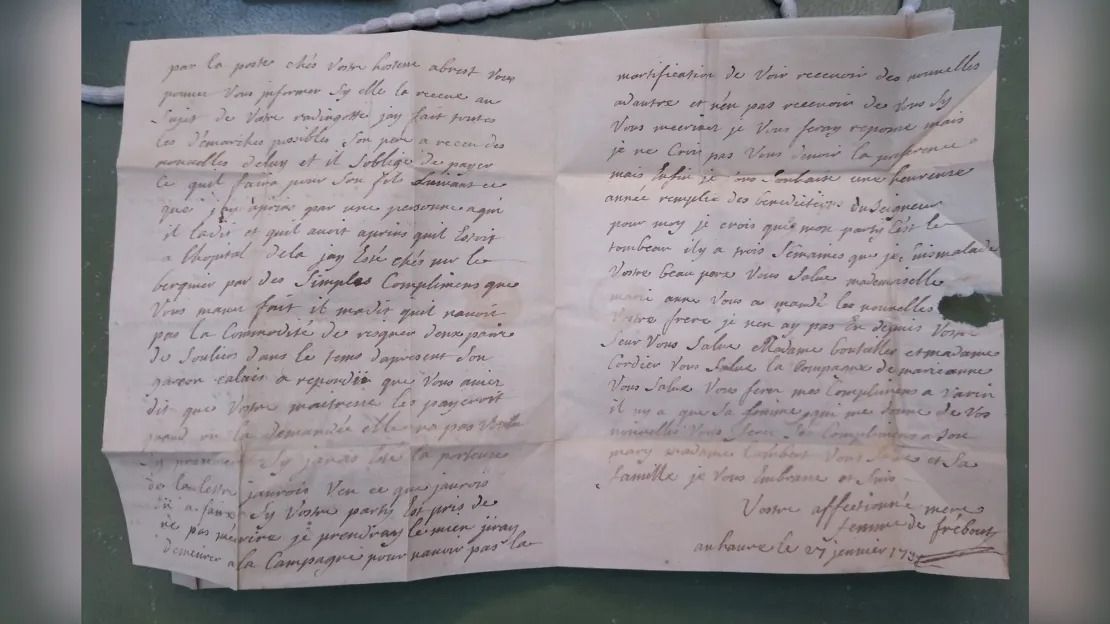 par la poste chés Vostre hostesse abrest Vous
pouvez Vous informer Sy elle la receue au
Sujet de Votre radingotte jay fait toutes
les démarches posibles Son pere a receu des
nouvelles deluy et il Soblige de payer
Ce quil faira pour Son fils Suivant ce
que jay apris par une personne aqui
il ladit et quil avoit apris quil Estoit
a lhopital dela jay Esté chés mr le
berguier par des Simples Complimens que
Vous mavez fait il madit quil navoit
pas la Commodité de risquer deux paire
de Souliers dans le tems dapresent Son
garcon calais a repondu que Vous aviez
dit que Vostre maitresse les payeroit
quand on la demandée elle na pas
Sy javois Esté la porteuse
de la lettre jaurois Veu ce que jaurois
a faire Sy Vostre party Est pris de
ne pas mecrire je prendray le mien jiray
demeurer a la Campagne pour navoir pas la
mortification de Voir recevoir des nouvelles
adautre et nen pas recevoir de Vous Sy
Vous mecrivez je Vous feray reponse mais
je ne Crois pas Vous devoir la preference
mais Enfin je Vous Souhaite une heureuse
année remplie des benedictions du Seigneur
pour moy je crois que mon party Est le
tombeau il y a trois Semaines que je Suis malade
Vostre beau pere Vous Salue mademoiselle
marie anne Vous a mandé les nouvelles
Vostre frere je nen ay pas Eu depuis Vostre
Seur Vous Salue Madame bouteilles et madame
Cordier Vous Salue la Compagne de marianne
Vous Salue Vous ferez mes Complimens a Varin
il ny a que Sa femme qui me donne de Vos
nouvelles Vous ferez Ses Complimens a Son
mary madame Lambert Vous Salue et Sa
famille je Vous Embrasse et Suis
Vostre affectionné mere
femme de frébourg
au havre le 27 jenvier